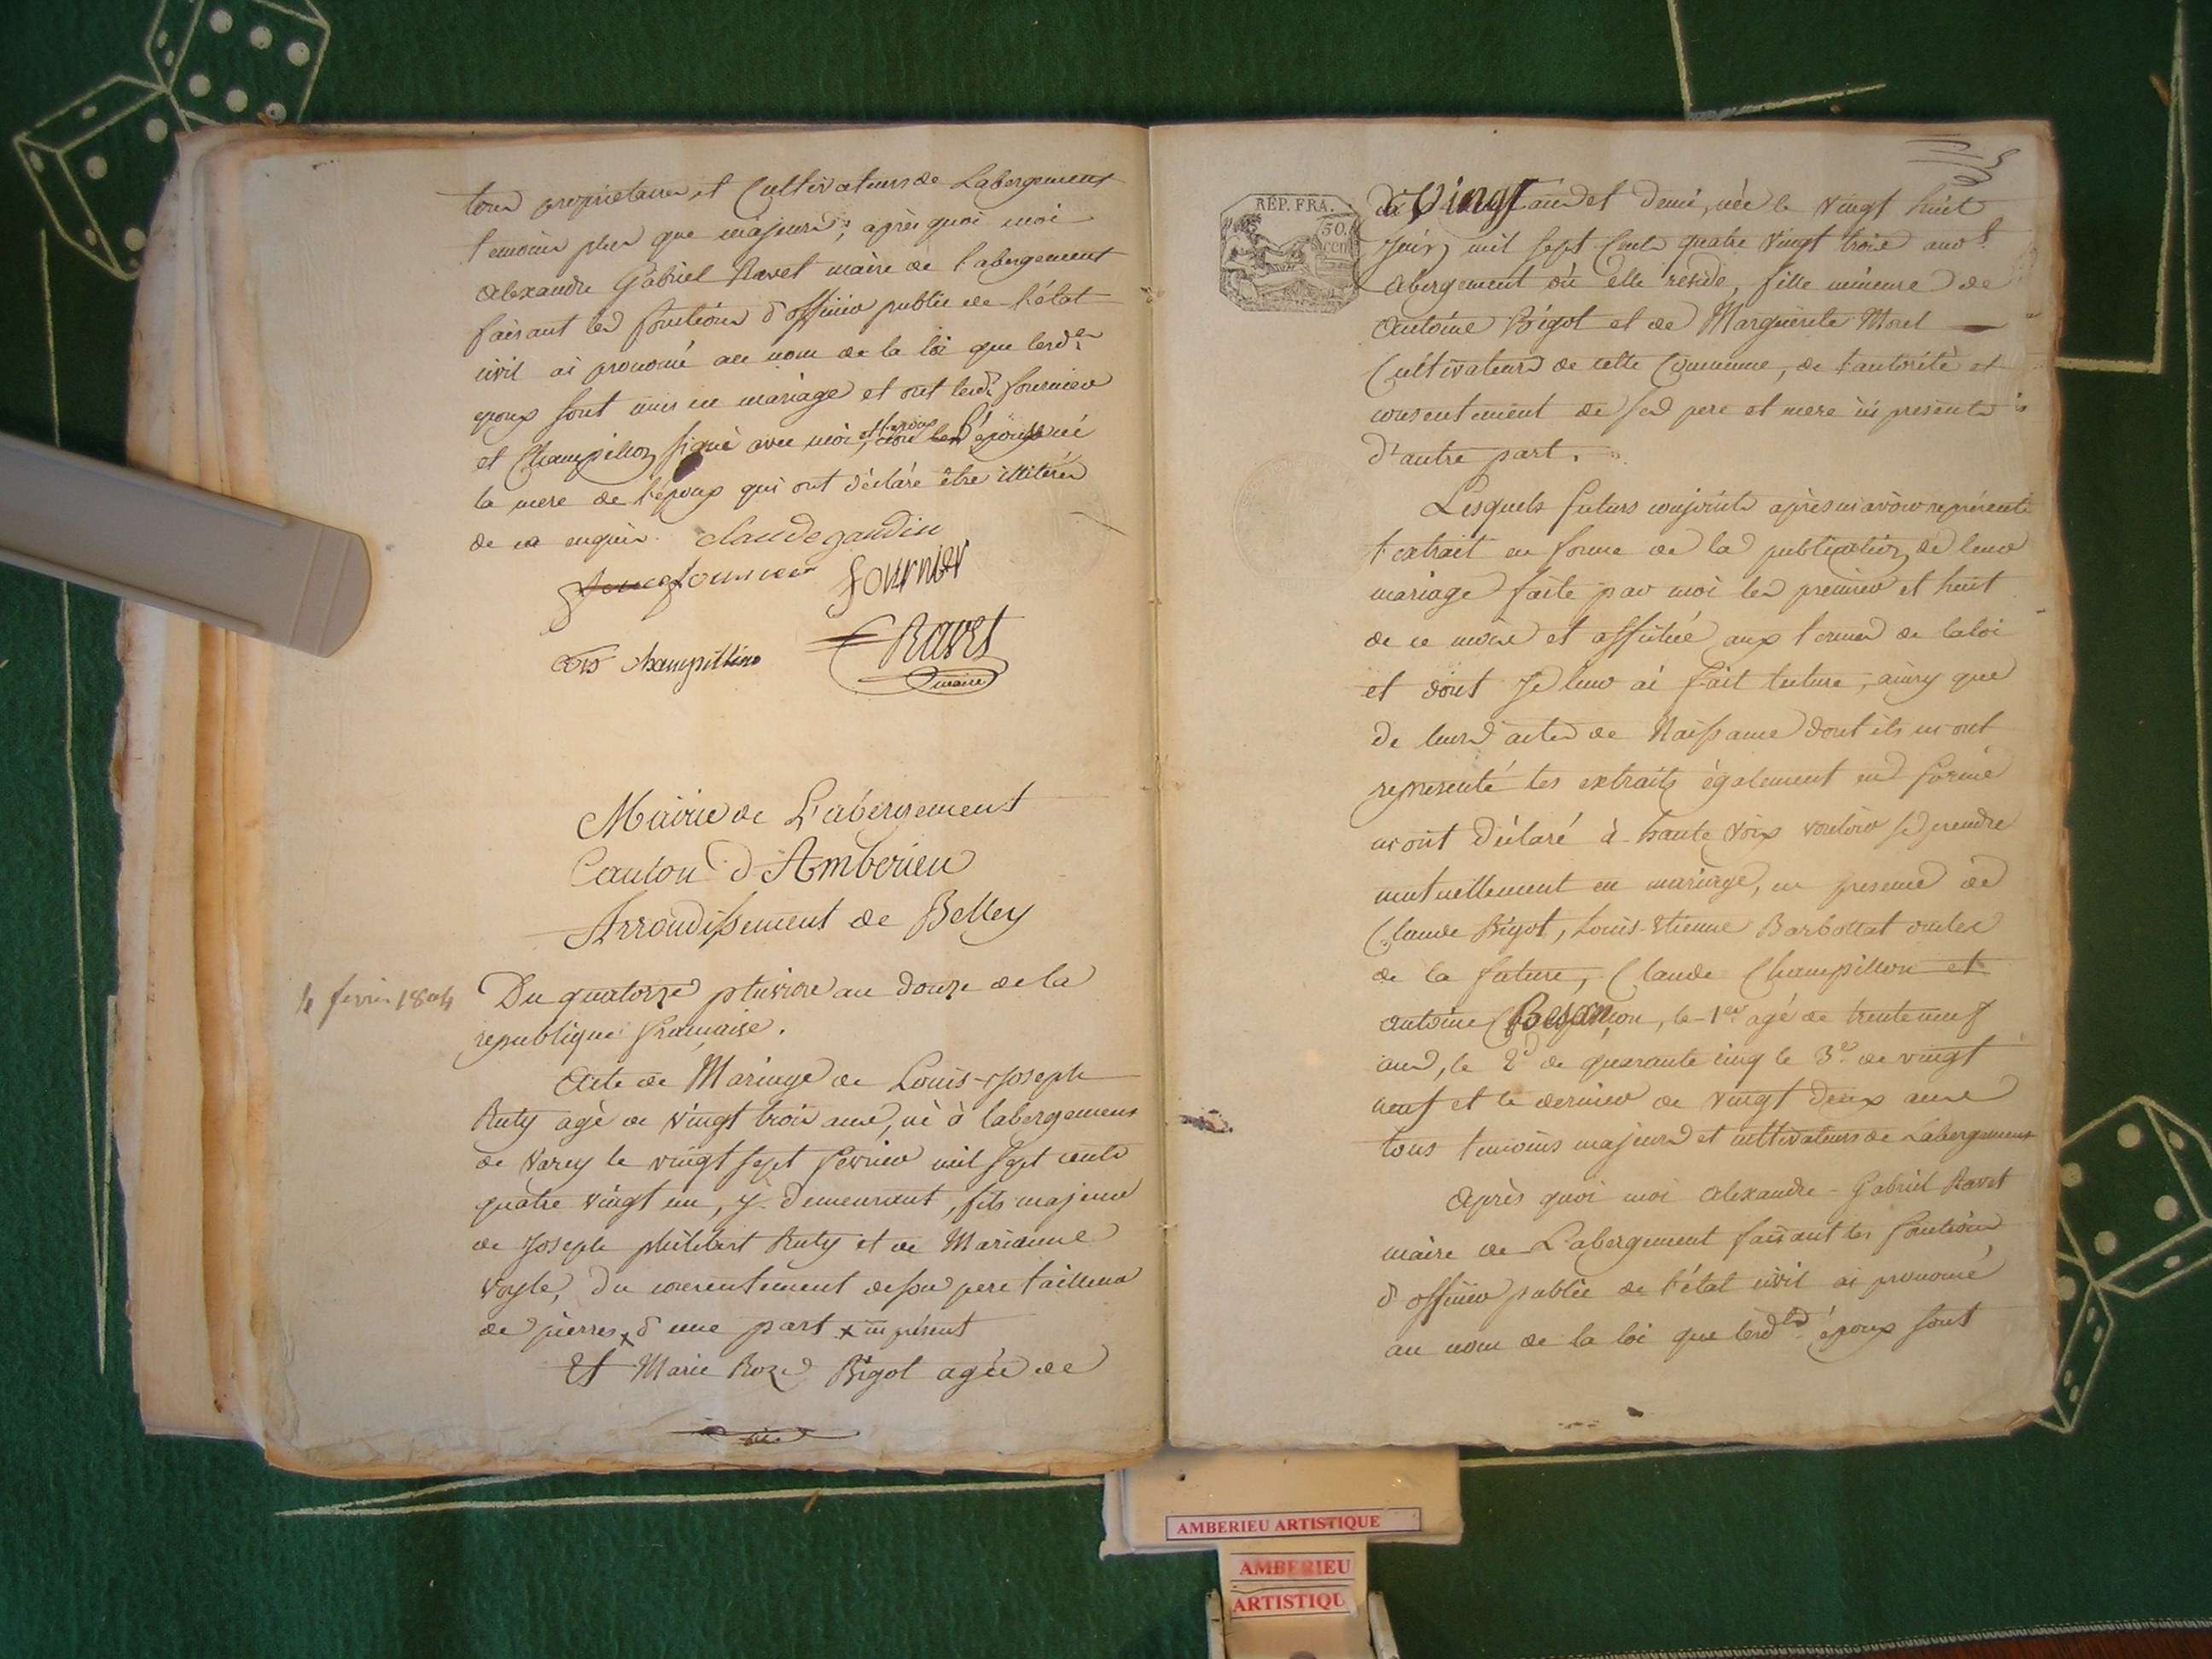 tous proprietaires et Cultivateurs de Labergement
temoins plus que majeurs; après quoi moi
alexandre Gabriel Ravet maire de l'abergement
faisant les fonctions d'officier public de l'état
civil ai prononcé au nom de la loi que lesd.
epoux sont unis en mariage et ont lesd. fournier
et Champillon signé avec moi, et l'epoux l'épouse ni
la mere de l'époux qui ont déclaré être illitérés
de ce enquis. Claude gaudin
fournier fournier
Champillion Ravet
maire
Mairie de L'abergement
Canton d'Amberieu
Arrondissement de Belley
4 fevrier 1804
Du quatorze pluviose an douze de la
republique française.
Acte de Mariage de Louis-Joseph
Ruty agé de vingt trois ans, né à labergement
de Varey le vingt sept fevrier mil sept cents
quatre vingt un, y demeurant, fils majeur
de Joseph philibert Ruty et de Marianne
Voyle, du consentement de son pere tailleur
de pierres x d'une part x ici présent
Et Marie Roze Bigot agée de
RÉP. FRA.
50.
cen.
Vingt ans et demi, née le vingt huit
Juin mil sept Cents quatre vingt trois aud.
abergement où elle réside, fille mineure de
Antoine Bigot et de Marguerite Morel
Cultivateurs de cette Commune, de l'autorité et
consentement de ses pere et mere ici presents
d'autre part.
Lesquels futurs conjoints après m'avoir représenté
l'extrait en forme de la publication de leur
mariage faite par moi les premier et huit
de ce mois et affichée aux termes de la loi
et dont Je leur ai fait lecture, ainsy que
de leurs actes de Naissance dont ils m'ont
representé les extraits également en forme
m'ont déclaré à haute voix vouloir se prendre
mutuellement en mariage, en presence de
Claude Bigot, Louis-Etienne Barbottat oncles
de la future, Claude Champillon et
antoine Besançon, le 1er agé de trente neuf
ans, le 2e de quarante cinq le 3e de vingt
neuf et le dernier de vingt deux ans
tous temoins majeurs et cultivateurs de Labergement
Après quoi moi alexandre-Gabriel Ravet
maire de L'abergement faisant les fonctions
d'officier public de l'état civil ai prononcé
au nom de la loi que lesd. époux sont
AMBERIEU ARTISTIQUE
AMBERIEU
ARTISTIQU